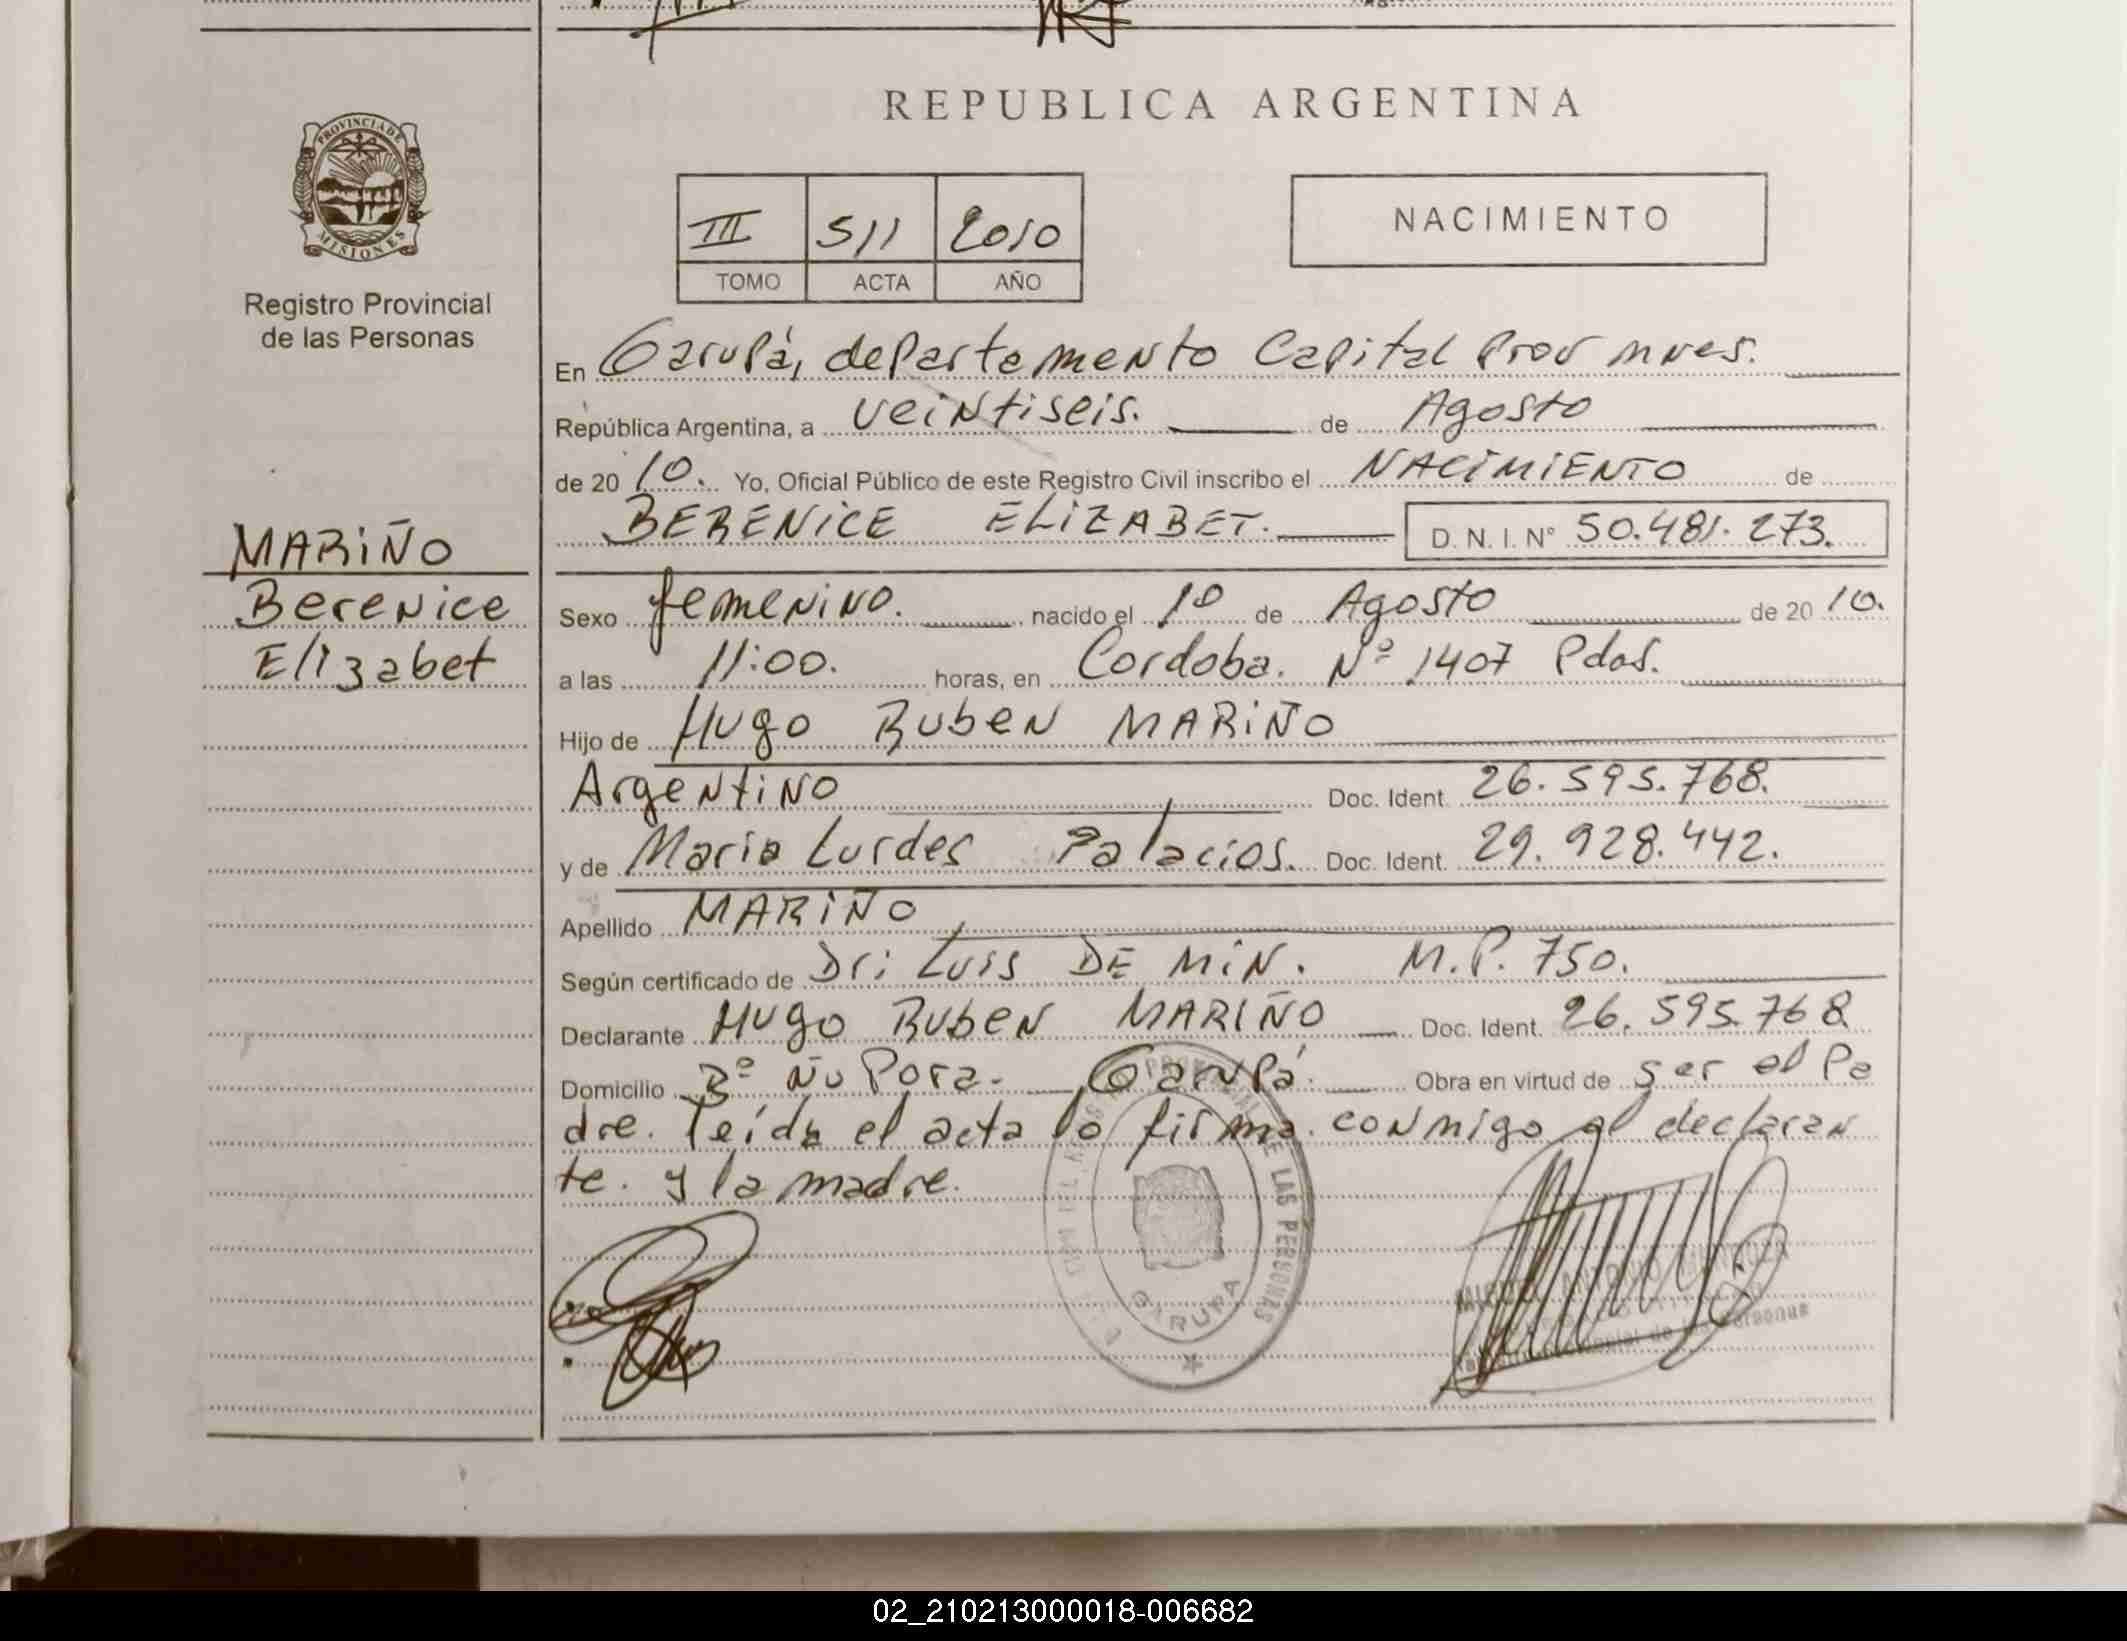 REPUBLICA ARGENTINA
PROVINCIA DE
MISIONES
Registro Provincial
de las Personas
III 511 2010
TOMO ACTA AÑO
NACIMIENTO
En Garupá, departamento Capital Prov mnes.
República Argentina, a veintiseis. de Agosto
de 20 10. Yo, Oficial Público de este Registro Civil inscribo el NACIMIENTO de
BERENICE ELIZABET. D. N. I. Nº 50.481.273.
MARIÑO
Berenice
Elizabet
Sexo femenino. nacido el 10 de Agosto de 20 10.
a las 11:00. horas, en Cordoba. Nº 1407 Pdas.
Hijo de Hugo Ruben MARIÑO
Argentino Doc. Ident. 26.595.768.
y de Maria Lurdes Palacios. Doc. Ident. 29.928.442.
Apellido MARIÑO
Según certificado de Dr: Luis DE MIN. M.P. 750.
Declarante Hugo Ruben MARIÑO Doc. Ident. 26.595.768
Domicilio Bº Ñu Pora. Garupá. Obra en virtud de ser el Pa
dre. leída el acta la firma conmigo el declaran
te. y la madre.
LAS PERSONAS
GARUPA
MIGUEL ANTONIO
02_210213000018-006682